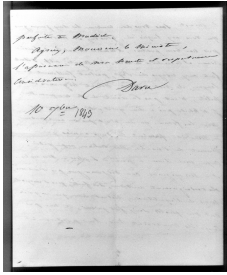 préfète de Madrid.
Agréez, Monsieur le Ministre,
l'expression de ma haute et respectueuse
considération.
Daru
10 1843